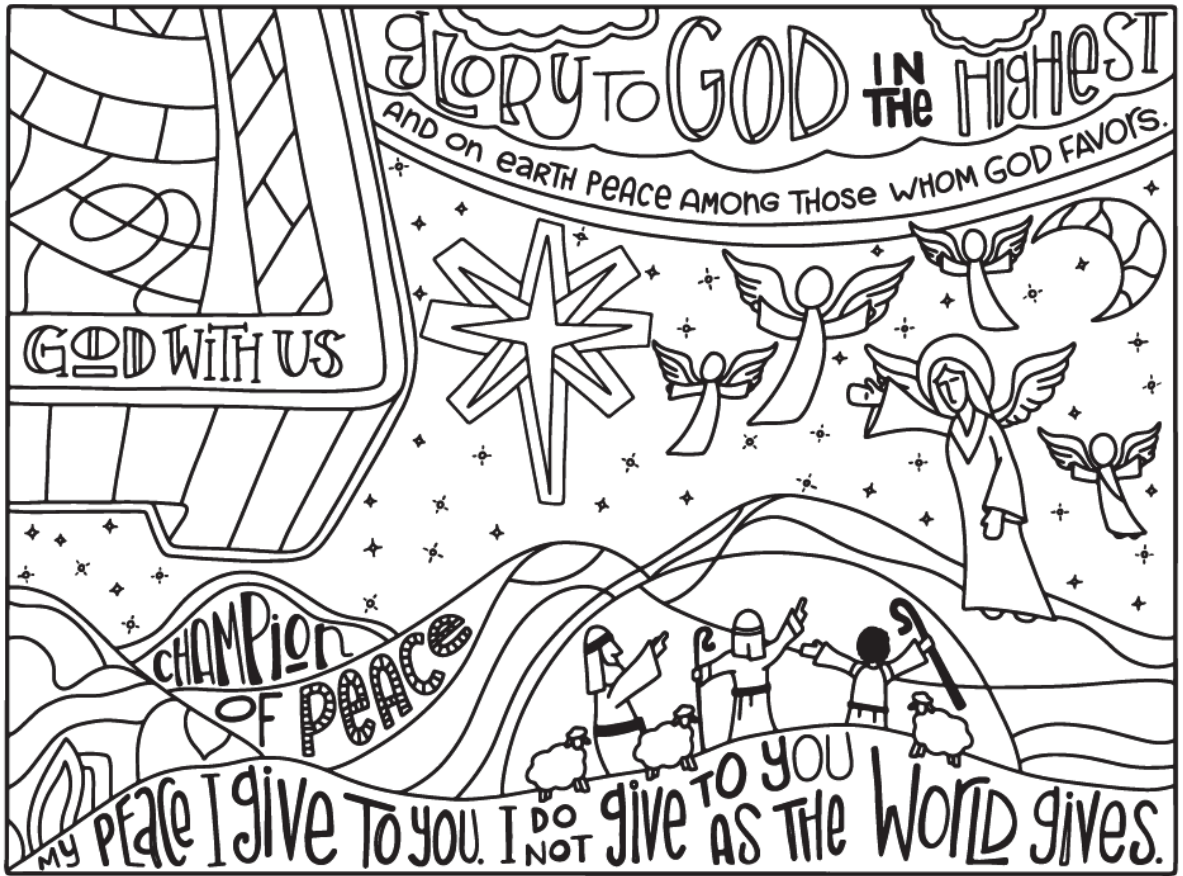 GLORY TO GOD IN THE HIGHEST
AND ON EARTH PEACE AMONG THOSE WHOM GOD FAVORS.
GOD WITH US
CHAMPION
OF PEACE
MY PEACE I give TO YOU. I DO NOT give TO YOU AS THE WORLD gives.